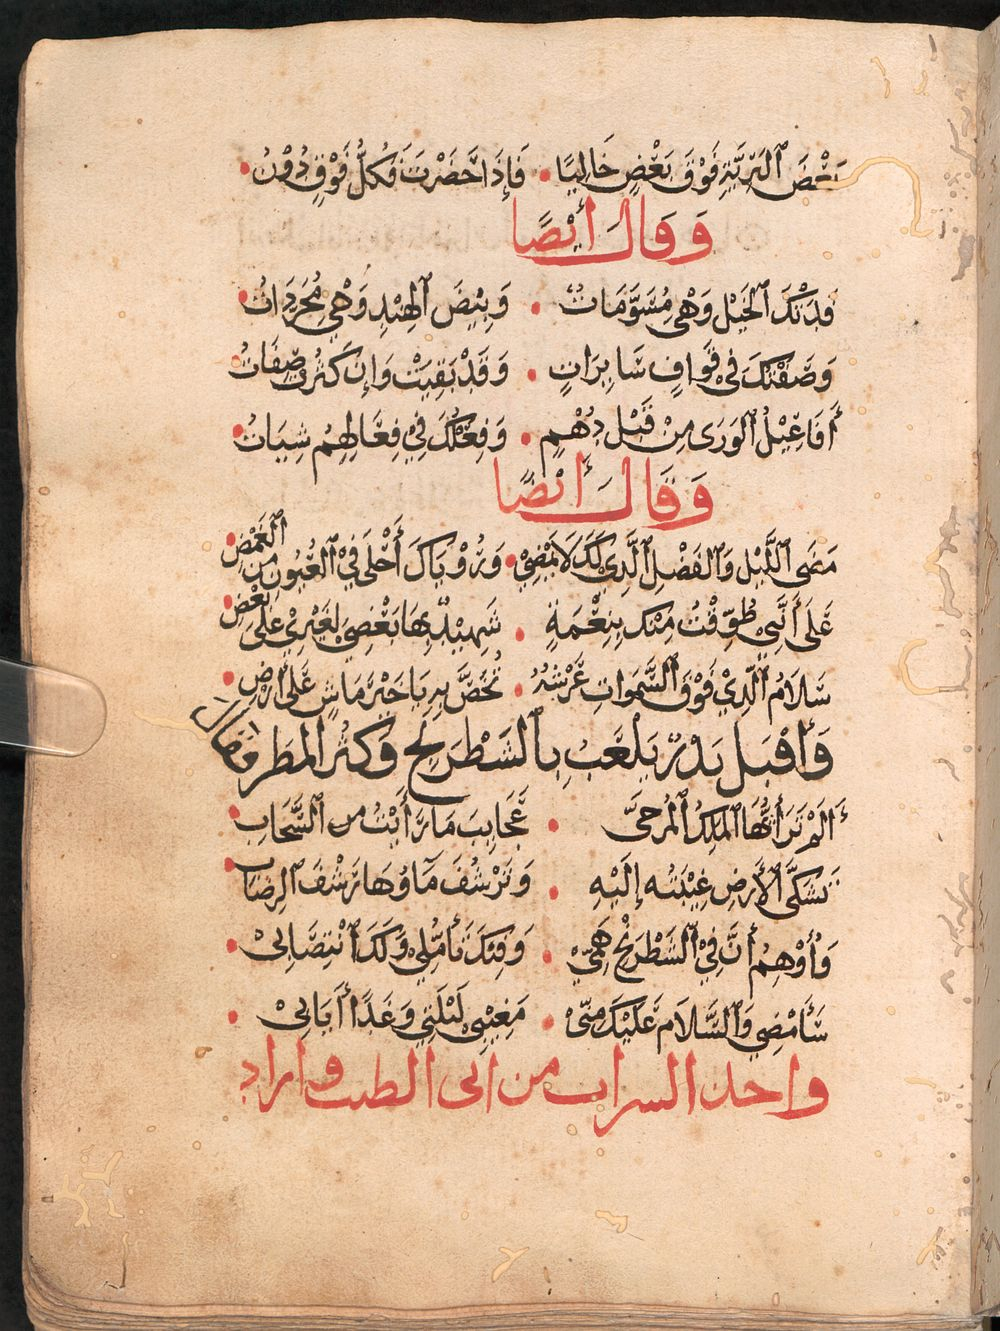 بَعْضَ ٱلبَرِيَّةِ فَوْقَ بَعْضٍ خَالِيًا • فَإِذَا حَضَرْتَ فَكُلُّ فَوْقٍ دُوْنُ •
وَقَالَ أَيْضًا
فَدَتْكَ ٱلخَيْلُ وَهْيَ مُسَوَّمَاتُ • وَبِيْضُ ٱلهِنْدِ وَهْيَ مُجَرَّدَاتُ •
وَصَفْتُكَ فِي قَوَافٍ سَايِرَاتٍ • وَقَدْ بَقِيَتْ وَإِن كَثُرَت صِفَاتُ •
أَفَاعِيْلُ ٱلوَرَى مِنْ قَبْلُ دُهْمٌ • وَفِعْلُكَ فِيْ فِعَالِهِمِ شِيَاتُ •
وَقَالَ أَيْضًا
مَضَى ٱللَّيْلُ وَٱلفَضْلُ ٱلَّذِي لَكَ لَا يَمْضِي • وَرُوْيَاكَ أَحْلَى فِيْ ٱلعُيُونِ مِنَ ٱلغَمْضِ •
عَلَى أَنَّنِي طُوِّقْتُ مِنْكَ بِنِعْمَةٍ • شَهِيْدٌ بِهَا بَعْضِي لِغَيْرِيْ عَلَى بَعْضِ •
سَلَامُ ٱلَّذِيْ فَوْقَ ٱلسَّمَوَاتِ عَرْشُهُ • تُخَصُّ بِهِ يَا خَيْرَ مَاشٍ عَلَى ٱلارْضِ •
وَأَقْبَلَ بَدْرٌ يَلعَبُ بِٱلشَطْرَنْجِ وَكَثُرَ المَطَرُ فَقَالَ
أَلَمْ تَرَ أَيُّهَا ٱلمَلِكُ ٱلمُرَجَّى • عَجَايِبَ مَا رَأَيْتُ مِنَ ٱلسَّحَابِ •
تَشَكَّى ٱلأَرْضُ غَيْبَتَهُ إِلَيْهِ • وَتَرْشُفُ مَآؤُهَا رَشْفَ ٱلرِضَابِ •
وَأُوْهِمُ أَنَّ فِيْ ٱلشَطْرَنْجِ هَمِّيْ • وَفِيْكَ تَأَمُّلِي وَلَكَ ٱنْتِصَابِىْ •
سَأَمْضِي وَٱلسَّلَامُ عَلَيْكَ مِنِّى • مَغِيْبِى لَيْلَتِي وَغَدًا أَيَابِىْ •
واحذ السراب من ابى الطيب واراد